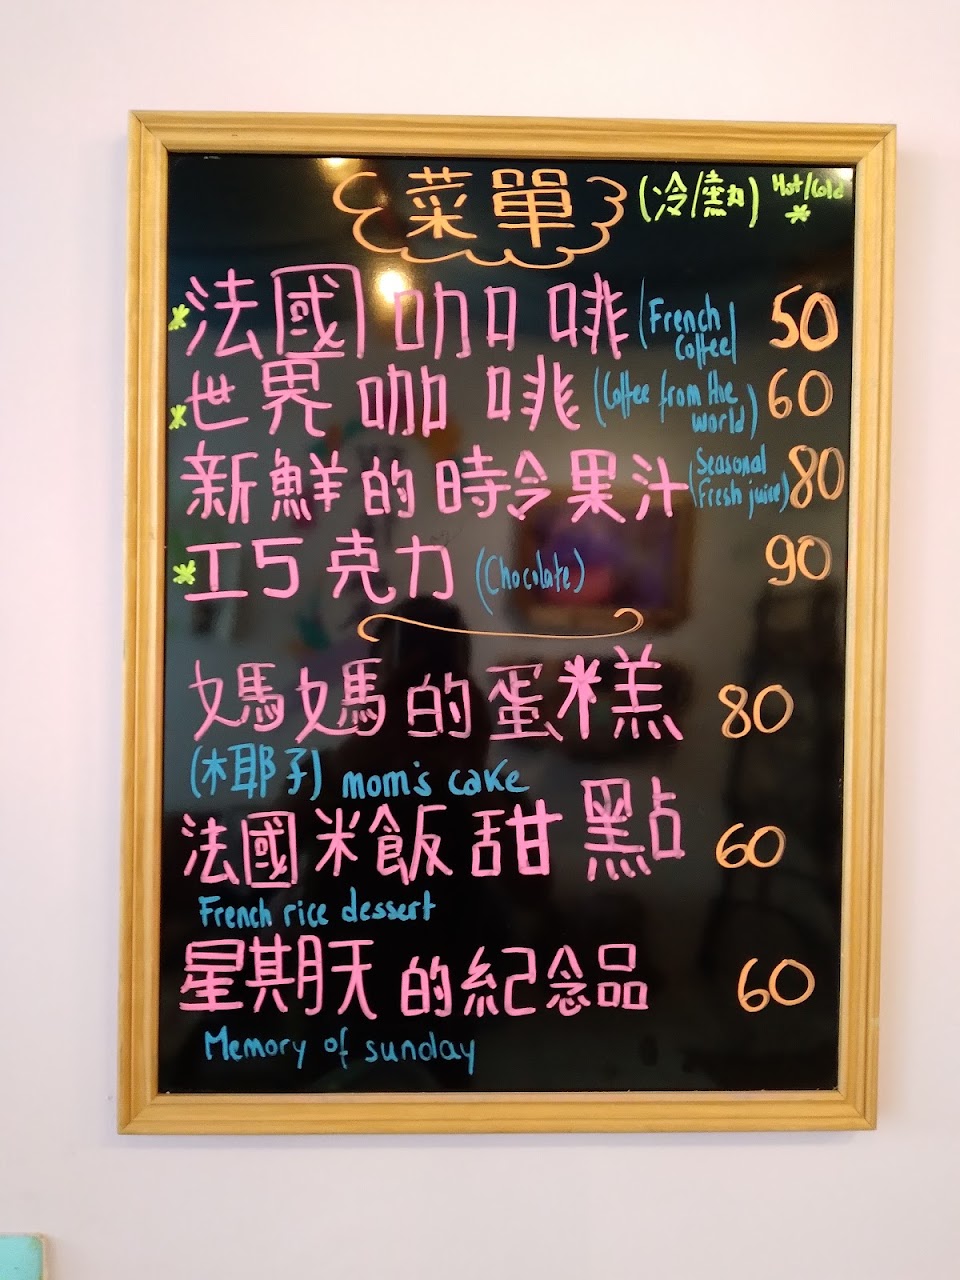 菜單 (冷/熱) Hot/Cold *
* 法國咖啡 (French Coffee) 50
* 世界咖啡 (Coffee from the world) 60
新鮮的時令果汁 (Seasonal Fresh juice) 80
* 工巧克力 (Chocolate) 90
媽媽的蛋糕 80
(椰子) mom's cake
法國米飯甜點 60
French rice dessert
星期天的紀念品 60
Memory of sunday